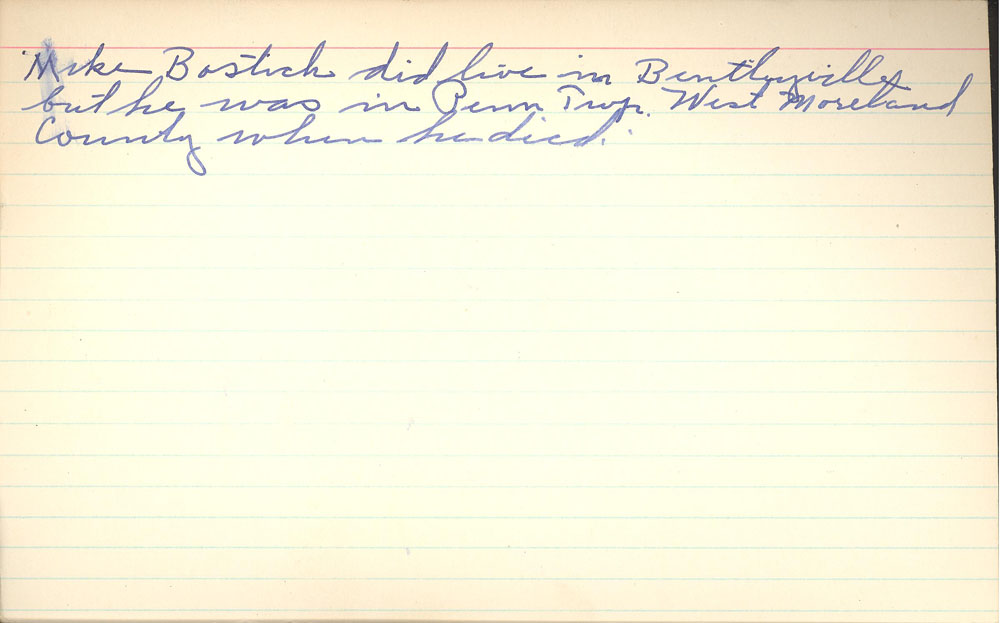 Mike Bostich did live in Bentleyville
but he was in Penn Twp. West Moreland
County when he died.